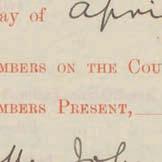 ay of Apri
MBERS ON THE COU
MBERS PRESENT,
Joh